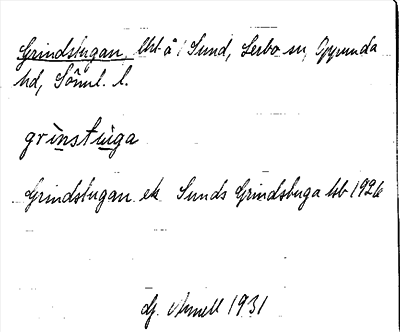 Grindstugan, lht å Sund, Lerbo sn, Oppunda
hd, Söml. l.
grìnstùga
Grindstugan ek Sunds Grindstuga lht 1926
1931